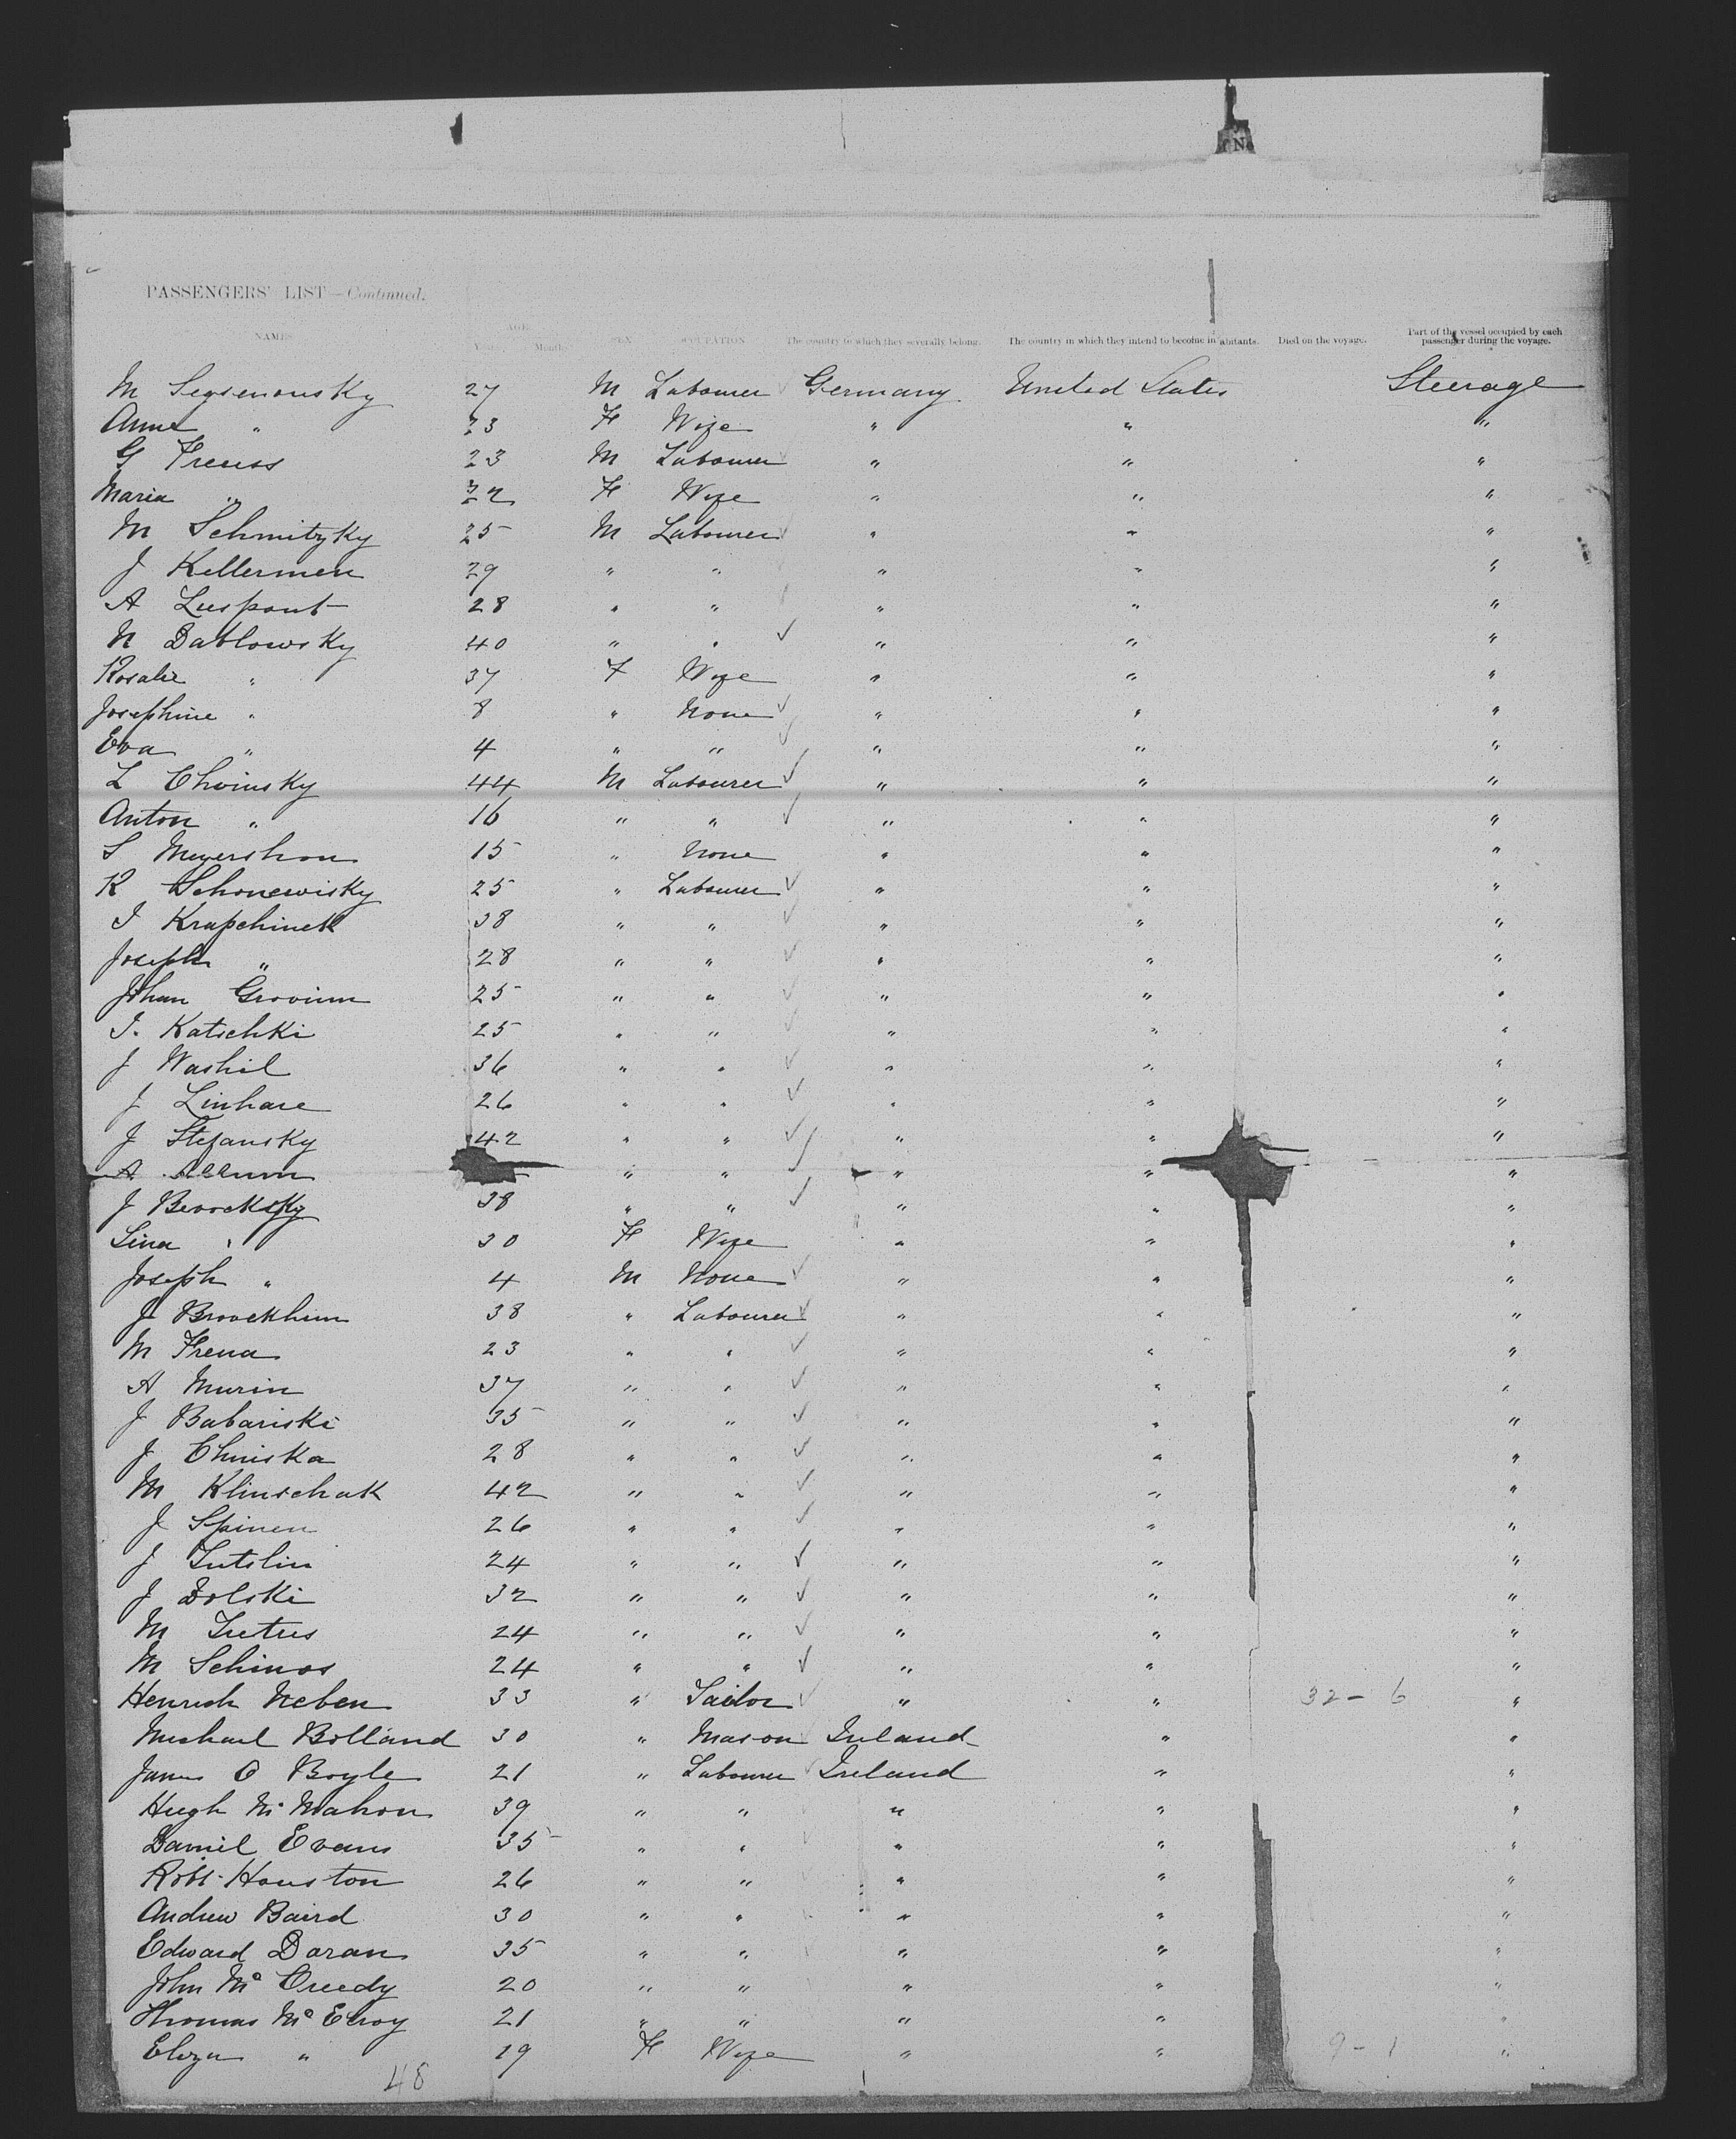 N
PASSENGERS' LIST—Continued.
NAMES AGE Years Months SEX OCCUPATION The country to which they severally belong. The country in which they intend to become inhabitants. Died on the voyage. Part of the vessel occupied by each passenger during the voyage.
M Segsenousky 27 M Labourer Germany United States Steerage
Anna " 23 F Wife " " "
G Freuss 23 M Labourer " " "
Maria " 22 F Wife " " "
M Schmitzky 25 M Labourer " " "
J Kellermen 29 " " " " "
A Luspont 28 " " " " "
N Dablowsky 40 " " " " "
Rosalie " 37 F Wife " " "
Josephine " 8 " None " " "
Eva " 4 " " " " "
L Choinsky 44 M Labourer " " "
Anton " 16 " " " " "
S Meyershon 15 " None " " "
K Schonewisky 25 " Labourer " " "
I Krapchinek 38 " " " " "
Joseph " 28 " " " " "
Johan Grovinn 25 " " " " "
I. Katschki 25 " " " " "
J Washil 36 " " " " "
J Linhare 26 " " " " "
J Stefansky 42 " " " " "
A " " " " "
J Berrocksky 38 " " " " "
Lina " 30 F Wife " " "
Joseph " 4 M None " " "
J Broockhim 38 " Labourer " " "
M Frena 23 " " " " "
A Murin 37 " " " " "
J Babariski 35 " " " " "
J Chniska 28 " " " " "
M Klinschak 42 " " " " "
J Spinen 26 " " " " "
J Tutslin 24 " " " " "
J Dolski 32 " " " " "
M Tutus 24 " " " " "
M Schinos 24 " " " " "
Henrich Neben 33 " Tailor " " 32-6 "
Michael Bolland 30 " Mason Ireland " "
James O Boyle 21 " Labourer Ireland " "
Hugh Mc Mahon 39 " " " " "
Daniel Evans 35 " " " " "
Robt. Houston 26 " " " " "
Andrew Baird 30 " " " " "
Edward Doran 35 " " " " "
John Mc Creedy 20 " " " " "
Thomas Mc Elroy 21 " " " " "
Eliza " 19 F Wife " " 9-1 "
48